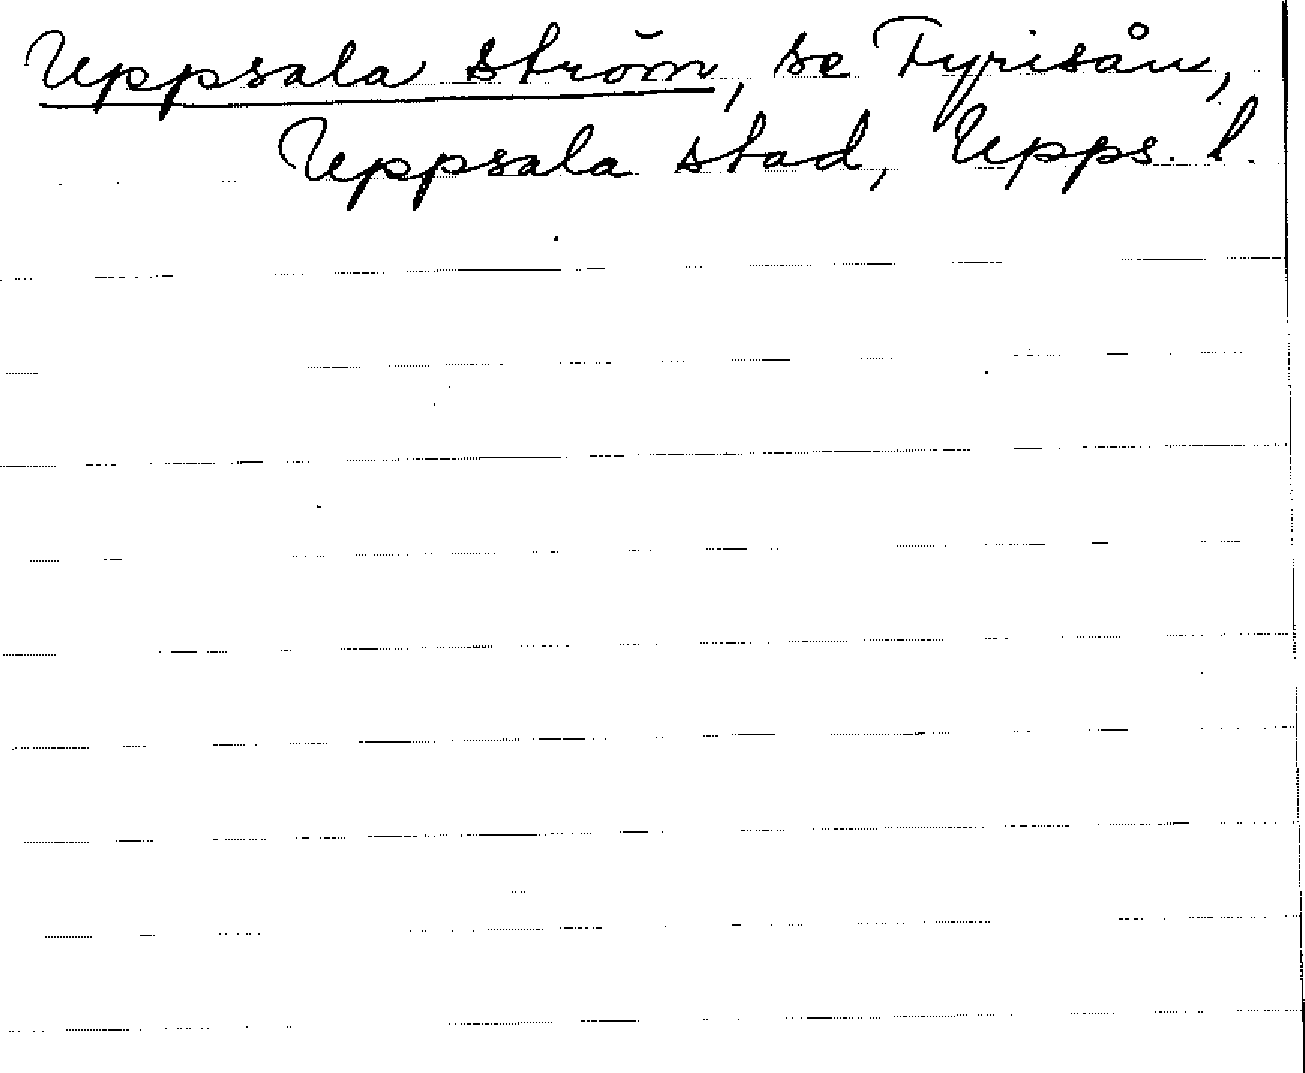 Uppsala ström, se Fyrisån,
Uppsala stad, Upps. l.